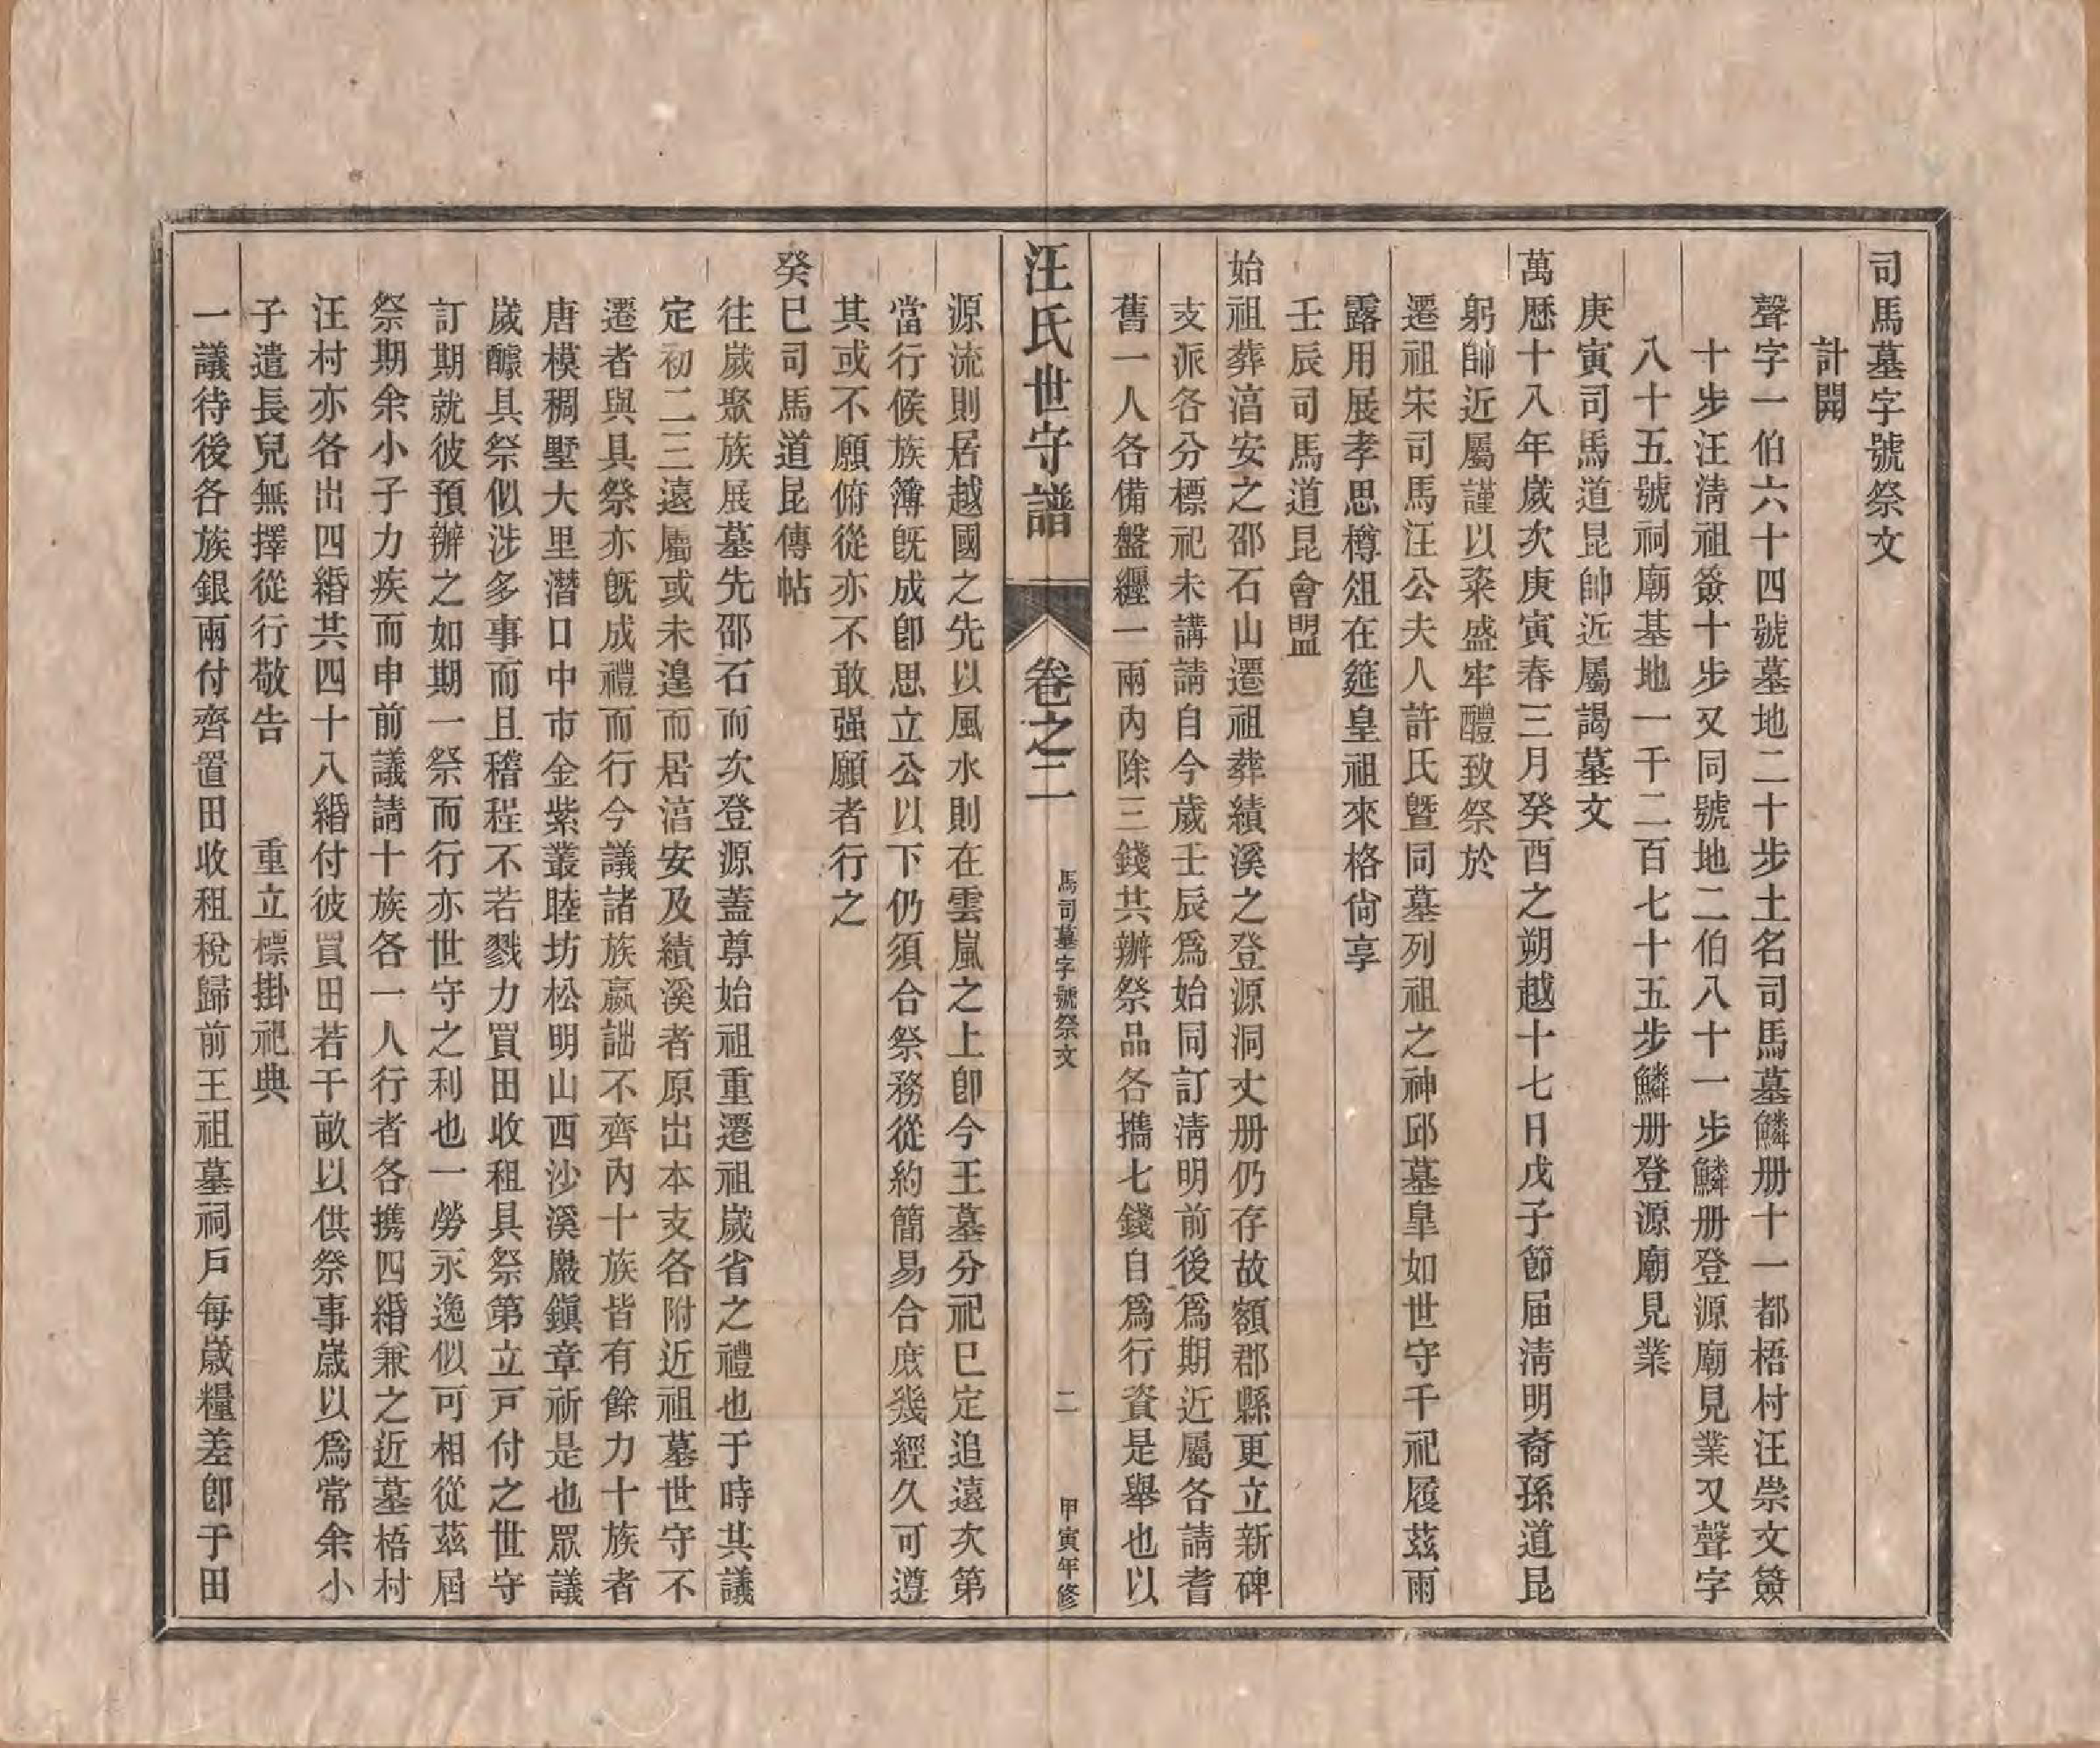 司馬墓字號祭文
計開
聲字一伯六十四號墓地二十步土名司馬墓鱗册十一都梧村汪崇文簽
十步汪淸祖簽十步又同號地二伯八十一步鱗册登源廟見業又聲字
八十五號祠廟基地一千二百七十五步鱗册登源廟見業
庚寅司馬道昆帥近屬謁墓文
萬歷十八年歲次庚寅春三月癸酉之朔越十七日戊子節届淸明裔孫道昆
躬帥近屬謹以粢盛牢醴致祭於
遷祖宋司馬汪公夫人許氏暨同墓列祖之神邱墓皐如世守千祀履茲雨
露用展孝思樽俎在筵皇祖來格尙享
壬辰司馬道昆會盟
始祖葬湻安之邵石山遷祖葬績溪之登源洞丈册仍存故額郡縣更立新碑
支派各分標祀未講請自今歲壬辰爲始同訂淸明前後爲期近屬各請耆
舊一人各備盤纒一兩內除三錢共辦祭品各攜七錢自爲行資是舉也以
汪氏世守譜 卷之二 馬司墓字號祭文 二 甲寅年修
源流則居越國之先以風水則在雲嵐之上卽今王墓分祀已定追遠次第
當行候族簿旣成卽思立公以下仍須合祭務從約簡易合庶幾經久可遵
其或不願俯從亦不敢强願者行之
癸巳司馬道昆傳帖
往歲聚族展墓先邵石而次登源蓋尊始祖重遷祖歲省之禮也于時共議
定初二三遠屬或未遑而居湻安及績溪者原出本支各附近祖墓世守不
遷者與具祭亦旣成禮而行今議諸族嬴詘不齊內十族皆有餘力十族者
唐模稠墅大里潛口中市金紫叢睦坊松明山西沙溪巖鎭章祈是也眾議
歲醵具祭似涉多事而且稽程不若戮力買田收租具祭第立戸付之世守
訂期就彼預辦之如期一祭而行亦世守之利也一勞永逸似可相從茲屆
祭期余小子力疾而申前議請十族各一人行者各携四緡兼之近墓梧村
汪村亦各出四緡共四十八緡付彼買田若干畝以供祭事歲以爲常余小
子遣長兒無擇從行敬告 重立標掛祀典
一議待後各族銀兩付齊置田收租稅歸前王祖墓祠戶每歲糧差卽于田